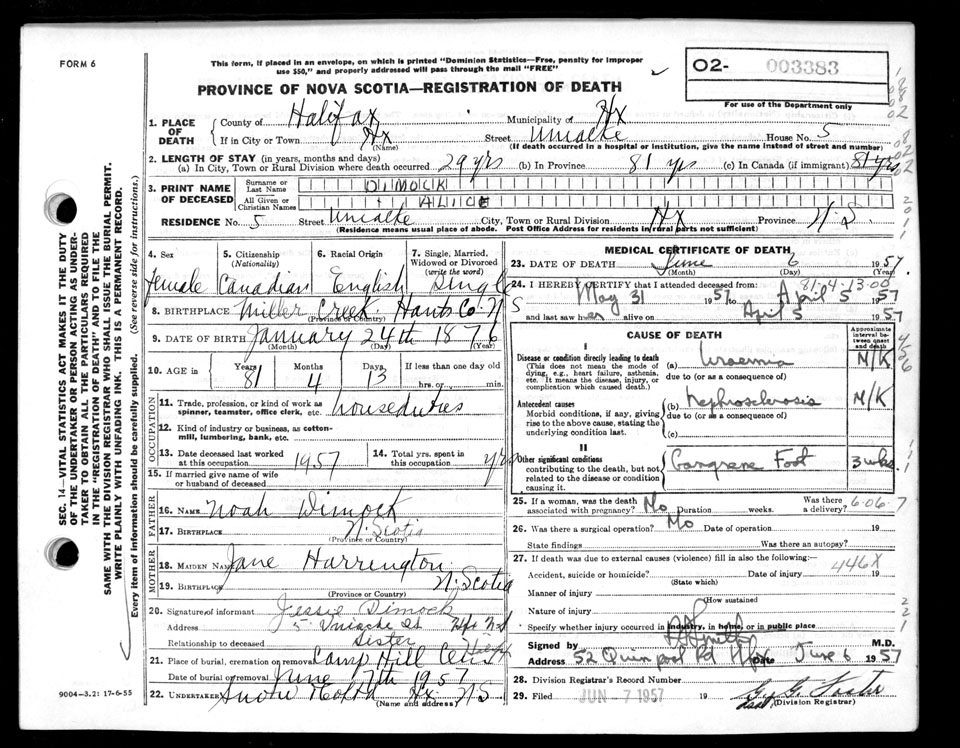 FORM 6
This form, if placed in an envelope, on which is printed "Dominion Statistics—Free, penalty for improper
use $50," and properly addressed will pass through the mail "FREE"
O2- 003383
For use of the Department only
PROVINCE OF NOVA SCOTIA—REGISTRATION OF DEATH
1. PLACE OF DEATH
County of Halifax Municipality of Hx
If in City or Town Hx Street Uniacke House No. 5
(Name) (If death occurred in a hospital or institution, give the name instead of street and number)
2. LENGTH OF STAY (in years, months and days)
(a) In City, Town or Rural Division where death occurred 29 yrs (b) In Province 81 yrs (c) In Canada (if immigrant) 81 yrs
3. PRINT NAME OF DECEASED
Surname or Last Name DIMOCK
All Given or Christian Names ALICE
RESIDENCE No. 5 Street Uniacke City, Town or Rural Division Hx Province N.S.
(Residence means usual place of abode. Post Office Address for residents in rural parts not sufficient)
4. Sex
female
5. Citizenship
(Nationality)
Canadian
6. Racial Origin
English
7. Single, Married,
Widowed or Divorced
(write the word)
Single
8. BIRTHPLACE Miller Creek Hants Co. N S
(Province or Country)
9. DATE OF BIRTH January 24th 1876
(Month) (Day) (Year)
10. AGE in
Years Months Days If less than one day old
81 4 13 hrs. or min.
OCCUPATION
11. Trade, profession, or kind of work as
spinner, teamster, office clerk, etc. houseduties
12. Kind of industry or business, as cotton-
mill, lumbering, bank, etc.
13. Date deceased last worked
at this occupation 1957
14. Total yrs. spent in
this occupation yrs
15. If married give name of wife
or husband of deceased
FATHER
16. NAME Noah Dimock
17. BIRTHPLACE N. Scotia
(Province or Country)
MOTHER
18. MAIDEN NAME Jane Harrington
19. BIRTHPLACE N. Scotia
(Province or Country)
20. Signature of informant Jessie Dimock
Address 5 Uniacke St Hfx N S
Relationship to deceased Sister
21. Place of burial, cremation or removal Camp Hill Cem Halifax
Date of burial or removal June 7th 1957
22. UNDERTAKER Snow Hx. N S.
(Name and address)
MEDICAL CERTIFICATE OF DEATH
23. DATE OF DEATH June 6 1957
(Month) (Day) (Year)
24. I HEREBY CERTIFY that I attended deceased from:
81-4-13-00
May 31 1957 to April 5 1957
and last saw her alive on April 5 1957
CAUSE OF DEATH
Approximate interval between onset and death
I
Disease or condition directly leading to death
(This does not mean the mode of
dying, e.g., heart failure, asthenia,
etc. It means the disease, injury, or
complication which caused death.)
(a) Uraemia N/K
due to (or as a consequence of)
Antecedent causes
Morbid conditions, if any, giving
rise to the above cause, stating the
underlying condition last.
(b) Nephrosclerosis N/K
due to (or as a consequence of)
(c)
II
Other significant conditions
contributing to the death, but not
related to the disease or condition
causing it.
Gangrene Foot 3 wks
25. If a woman, was the death
associated with pregnancy? No Duration weeks. Was there
a delivery?
6-06-7
26. Was there a surgical operation? No Date of operation 19
State findings Was there an autopsy?
27. If death was due to external causes (violence) fill in also the following: 446X
Accident, suicide or homicide? Date of injury 19
(State which)
Manner of injury
(How sustained
Nature of injury
Specify whether injury occurred in industry, in home, or in public place
Signed by Smith M.D.
Address 52 Quinpool Rd Hfx Date June 6 1957
28. Division Registrar's Record Number
29. Filed JUN 7 1957 19
(Division Registrar)
SEC. 14—VITAL STATISTICS ACT MAKES IT THE DUTY
OF THE UNDERTAKER OR PERSON ACTING AS UNDER-
TAKER TO OBTAIN ALL THE PARTICULARS REQUIRED
IN THE "REGISTRATION OF DEATH" AND TO FILE THE
SAME WITH THE DIVISION REGISTRAR WHO SHALL ISSUE THE BURIAL PERMIT.
WRITE PLAINLY WITH UNFADING INK. THIS IS A PERMANENT RECORD.
Every item of information should be carefully supplied. (See reverse side for instructions.)
9004-3.21: 17-6-55